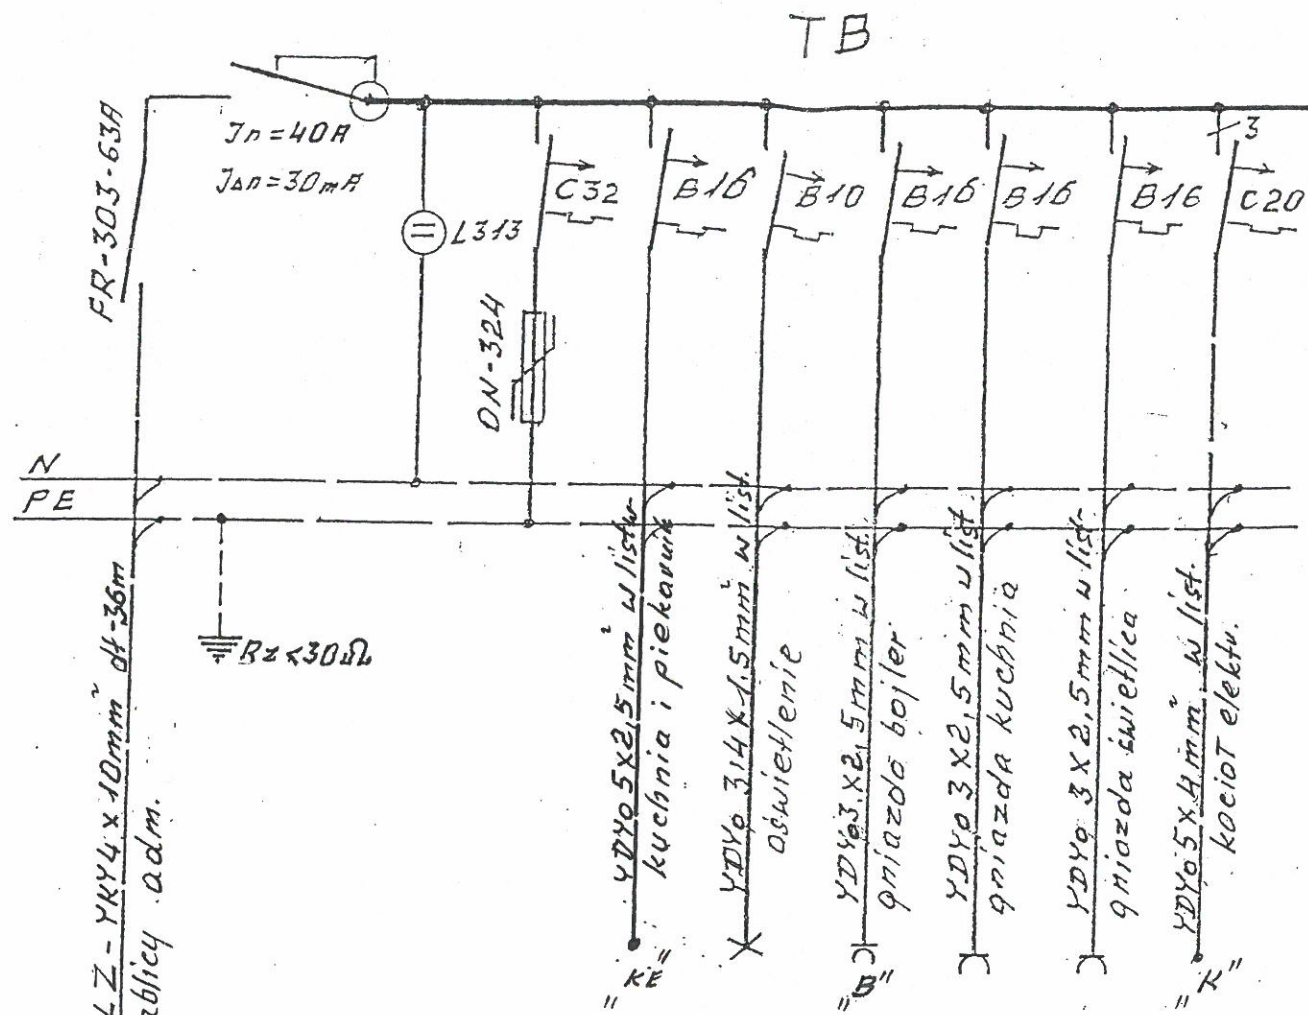 TB
FR-303-63A
Jn=40A
JΔn=30mA
L313
C32
B16
B10
B16
B16
B16
3
C20
ON-324
N
PE
Rz<30Ω
LZ-YKY4x10mm² dł-36m
ablicy adm.
YDYo 5x2,5mm² w listw
kuchnia i piekarnik
YDYo 3,4x1,5mm² w list.
oświetlenie
YDYo 3x2,5mm w list.
gniazdo bojler
YDYo 3x2,5mm w list
gniazda kuchnia
YDYo 3x2,5mm w list
gniazda świetlica
YDYo 5x4mm² w list.
kocioł elektr.
"KE"
"B"
"K"